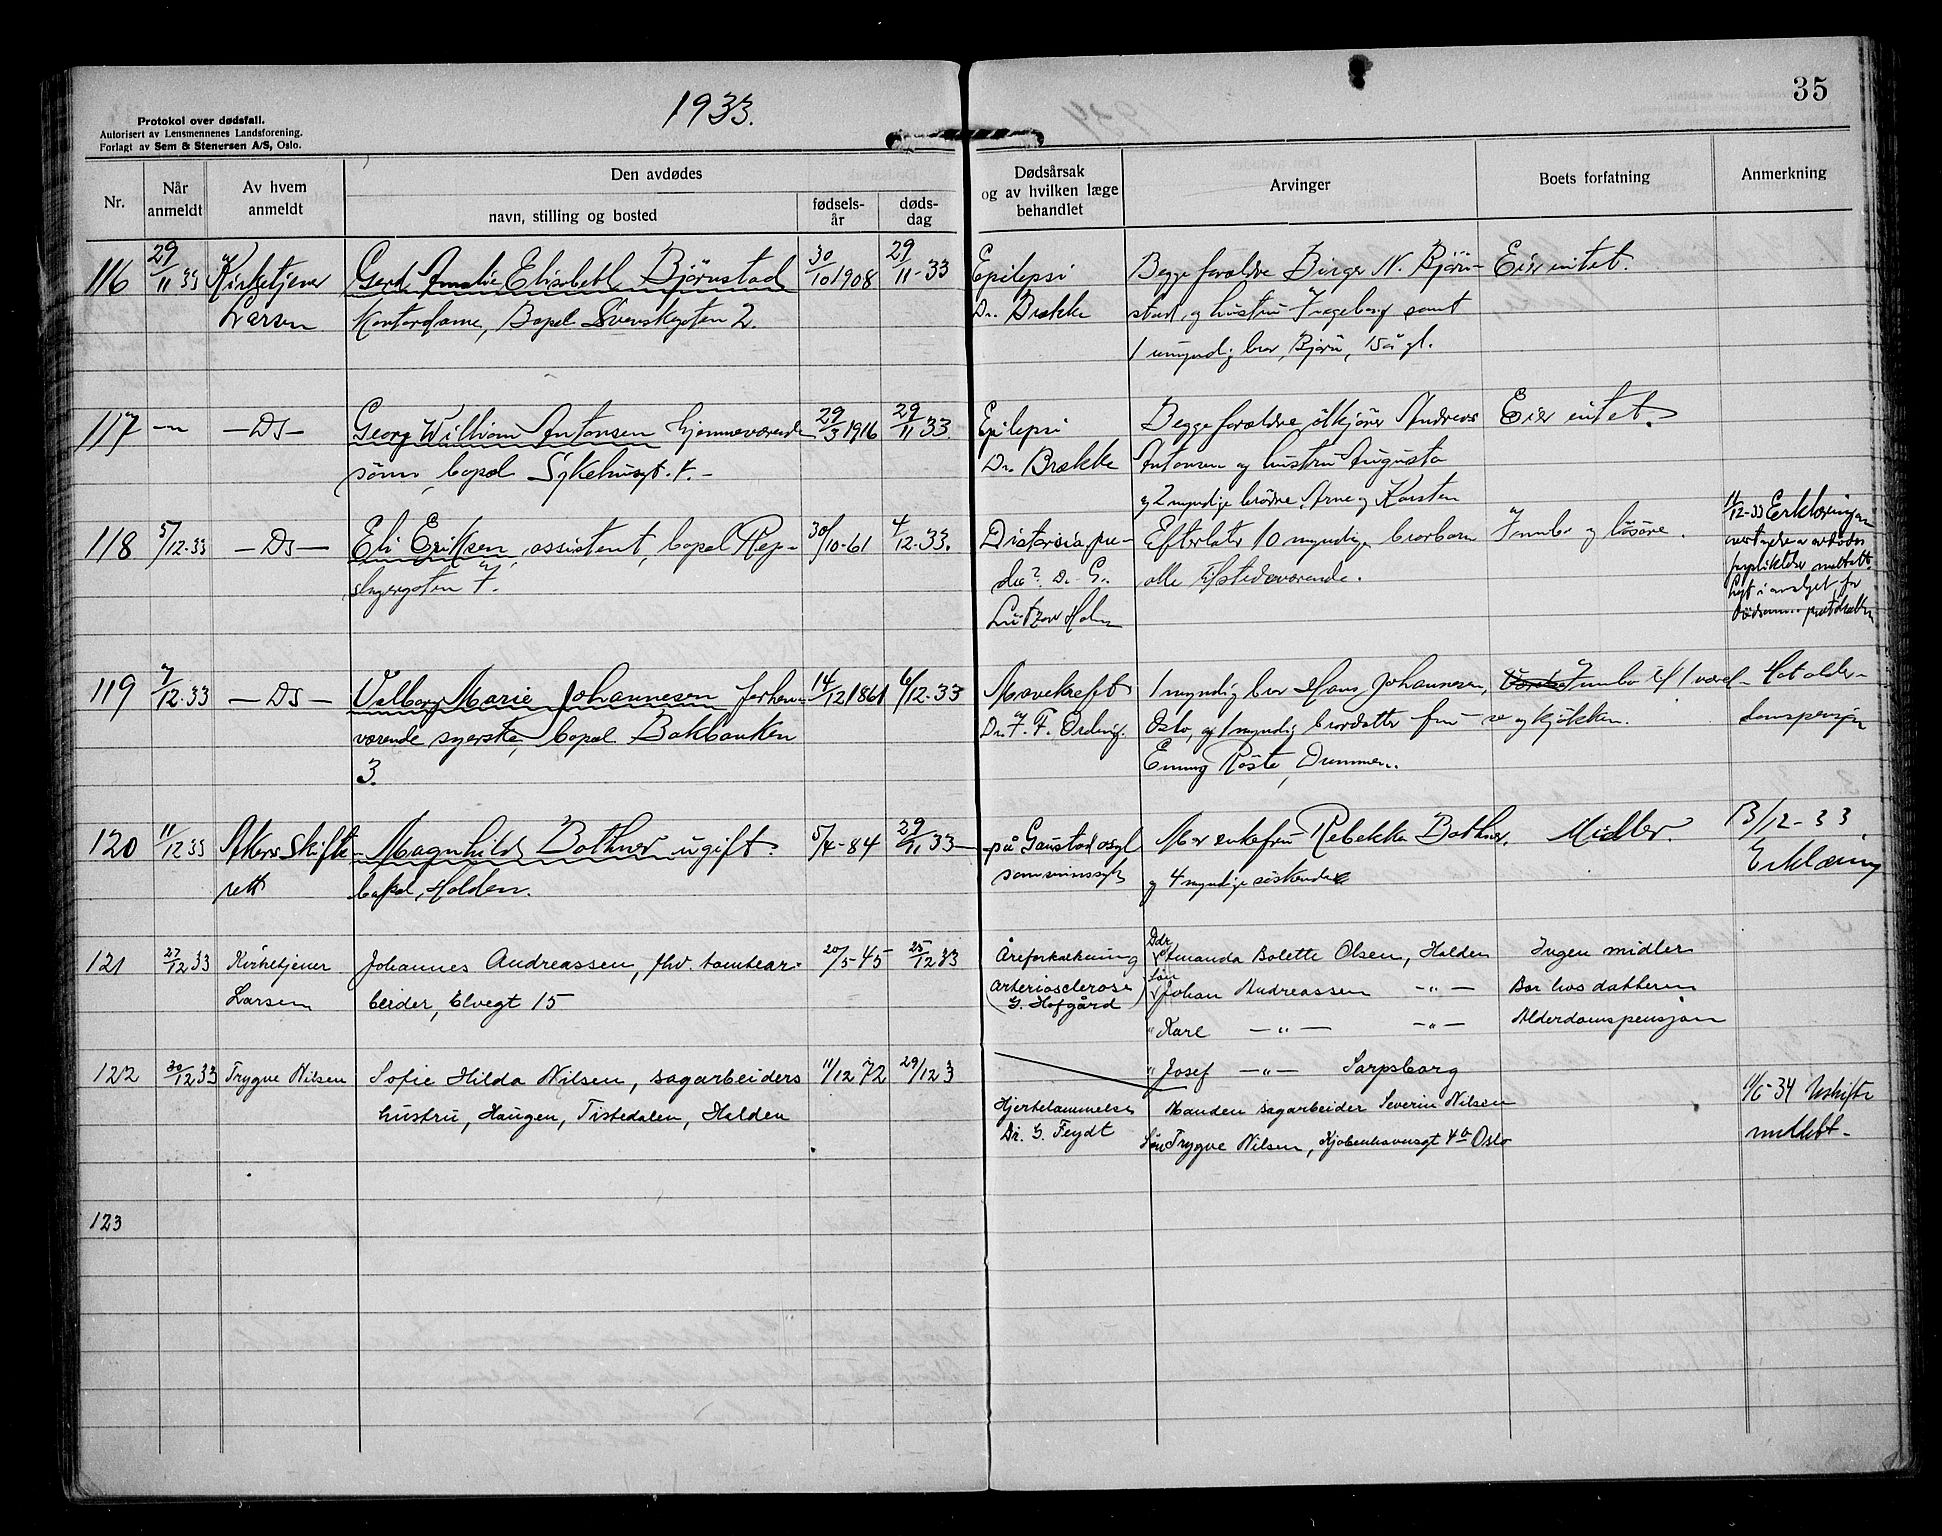 1933.
35
Protokol over dødsfall.
Autorisert av Lensmennenes Landsforening.
Forlagt av Sem & Stenersen A/S, Oslo.
Nr.
Når anmeldt
Av hvem anmeldt
Den avdødes
navn, stilling og bosted
fødsels-år
døds-dag
Dødsårsak og av hvilken læge behandlet
Arvinger
Boets forfatning
Anmerkning
116 29/11 33 Kirketjener Gerd Amalie Elisabeth Bjørnstad 30/10 1908 29/11-33 Epilepsi Begge foreldre Birger N. Bjørn- Eier intet.
Larsen Kontordame, Bopel Svenskegaten 2. Dr. Brekke stad og hustru Ingeborg samt
1 umyndig bror, Bjørn, 15 år gl.
117 -"- -Ds- Georg William Antonsen hjemmeværende 29/3 1916 29/11-33. Epilepsi Begge foreldre ølkjører Andreas Eier intet.
sønn, bopel Sykehusgt. 7.- Dr. Brekke Antonsen og hustru Augusta
og 2 myndige brødre, Arne og Karsten
118 5/12-33 -Ds- Eli Eriksen, assistent, bopel Rep- 30/10-61 4/12-33. Efterlater 10 myndige brorbarn Innbo og løsøre. 11/12-33 Erkleringen
slagergaten 7. Dr. G. alle tilstedeværende.
Lützow Holm
119 7/12-33 -Ds- Valborg Marie Johannesen forhen- 14/12 1861 6/12-33 Mavekreft 1 myndig bror Hans Johannesen, Innbo til 1 værel- Hat alder-
værende syerske, bopel Bakbanken Dr. F. F. Ording. Oslo, og 1 myndig brordatter fru se og kjøkken. domspensjon
3. Emmy Røste, Drammen.
120 11/12 33 Akers Skifte- Magnhild Bothner ugift. 5/4-84 29/11 33 på Gaustad asyl Mor enkefru Rebekka Bothner. Midler. 13/12-33.
rett bopel, Halden. som sinnssyk og 4 myndige søskende Erklæring
121 27/12 33 Kirketjener Johannes Andreassen, fhv. tomtear- 20/5-45 25/12 33 Åreforkalkning Ddr. Amanda Bolette Olsen, Halden Ingen midler
Larsen beider, Elvegt 15 (arteriosclerose) Søn Johan Andreassen -"- Bor hos datteren
G. Hofgård " Kare -"- -"- Alderdomspensjon
" Josef -"- Sarpsborg
122 30/12 33 Trygve Nilsen Sofie Hilda Nilsen, sagarbeiders 11/12 72 29/12 3
hustru, Haugen, Tistedalen, Halden Hjertelammelse Manden sagarbeider Severin Nilsen Uskifte
Dr. G. Feydt Søn Trygve Nilsen, Kjøbenhavnsgt 4b Oslo meddelt-
123